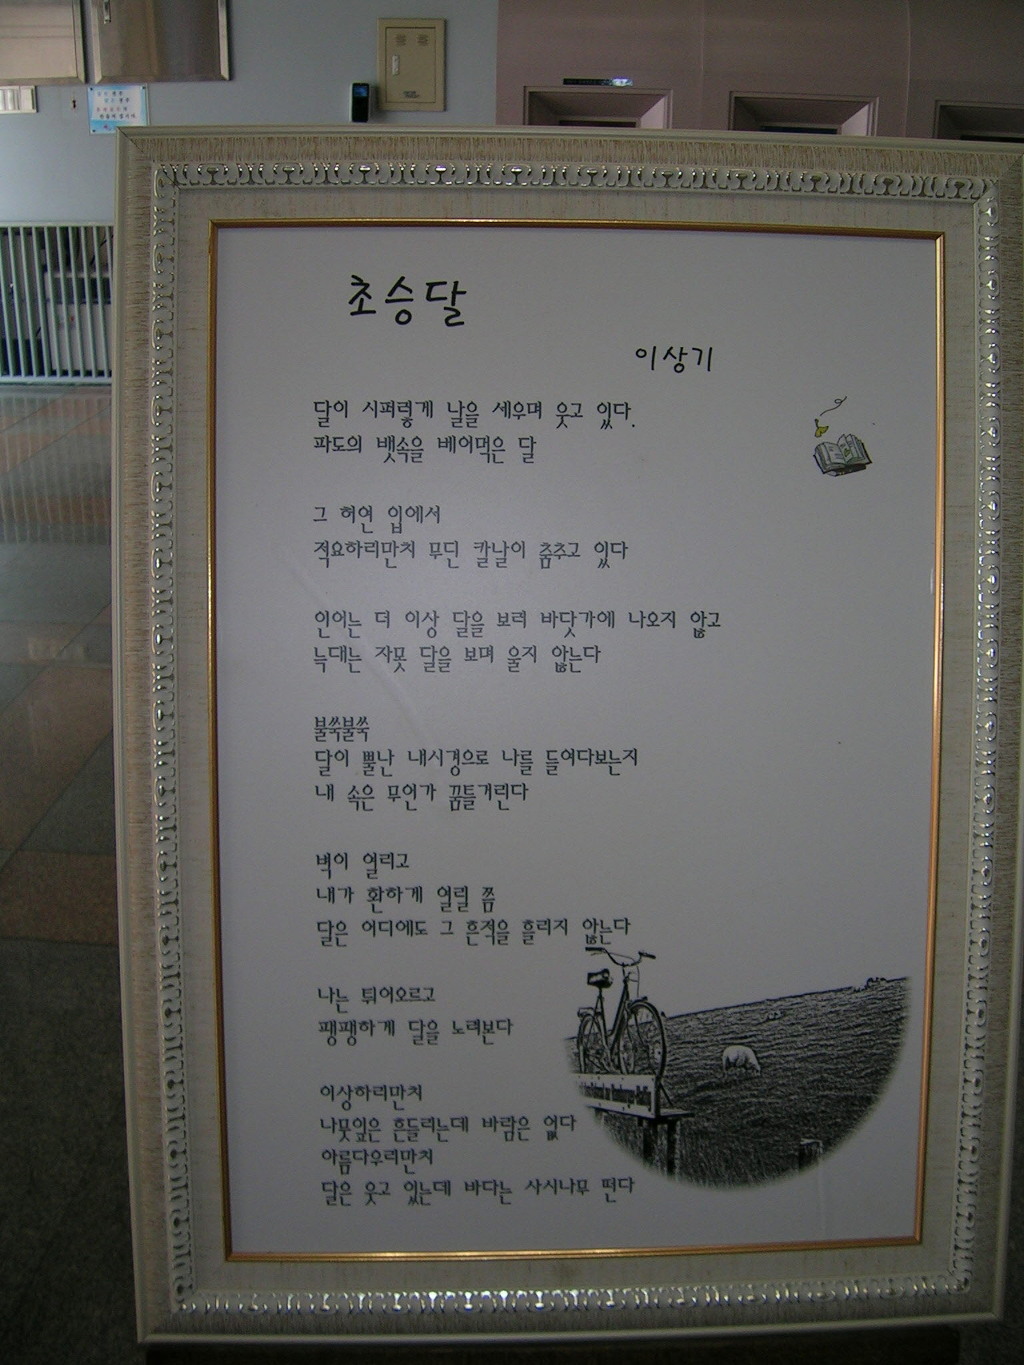 초승달
이상기
달이 시퍼렇게 날을 세우며 웃고 있다.
파도의 뱃속을 베어먹은 달
그 허연 입에서
적요하리만치 무딘 칼날이 춤추고 있다
인어는 더 이상 달을 보러 바닷가에 나오지 않고
늑대는 자못 달을 보며 울지 않는다
불쑥불쑥
달이 뿔난 내시경으로 나를 들여다보는지
내 속은 무언가 꿈틀거린다
벽이 열리고
내가 환하게 열릴 쯤
달은 어디에도 그 흔적을 흘리지 않는다
나는 튀어오르고
팽팽하게 달을 노려본다
이상하리만치
나뭇잎은 흔들리는데 바람은 없다
아름다우리만치
달은 웃고 있는데 바다는 사시나무 떤다